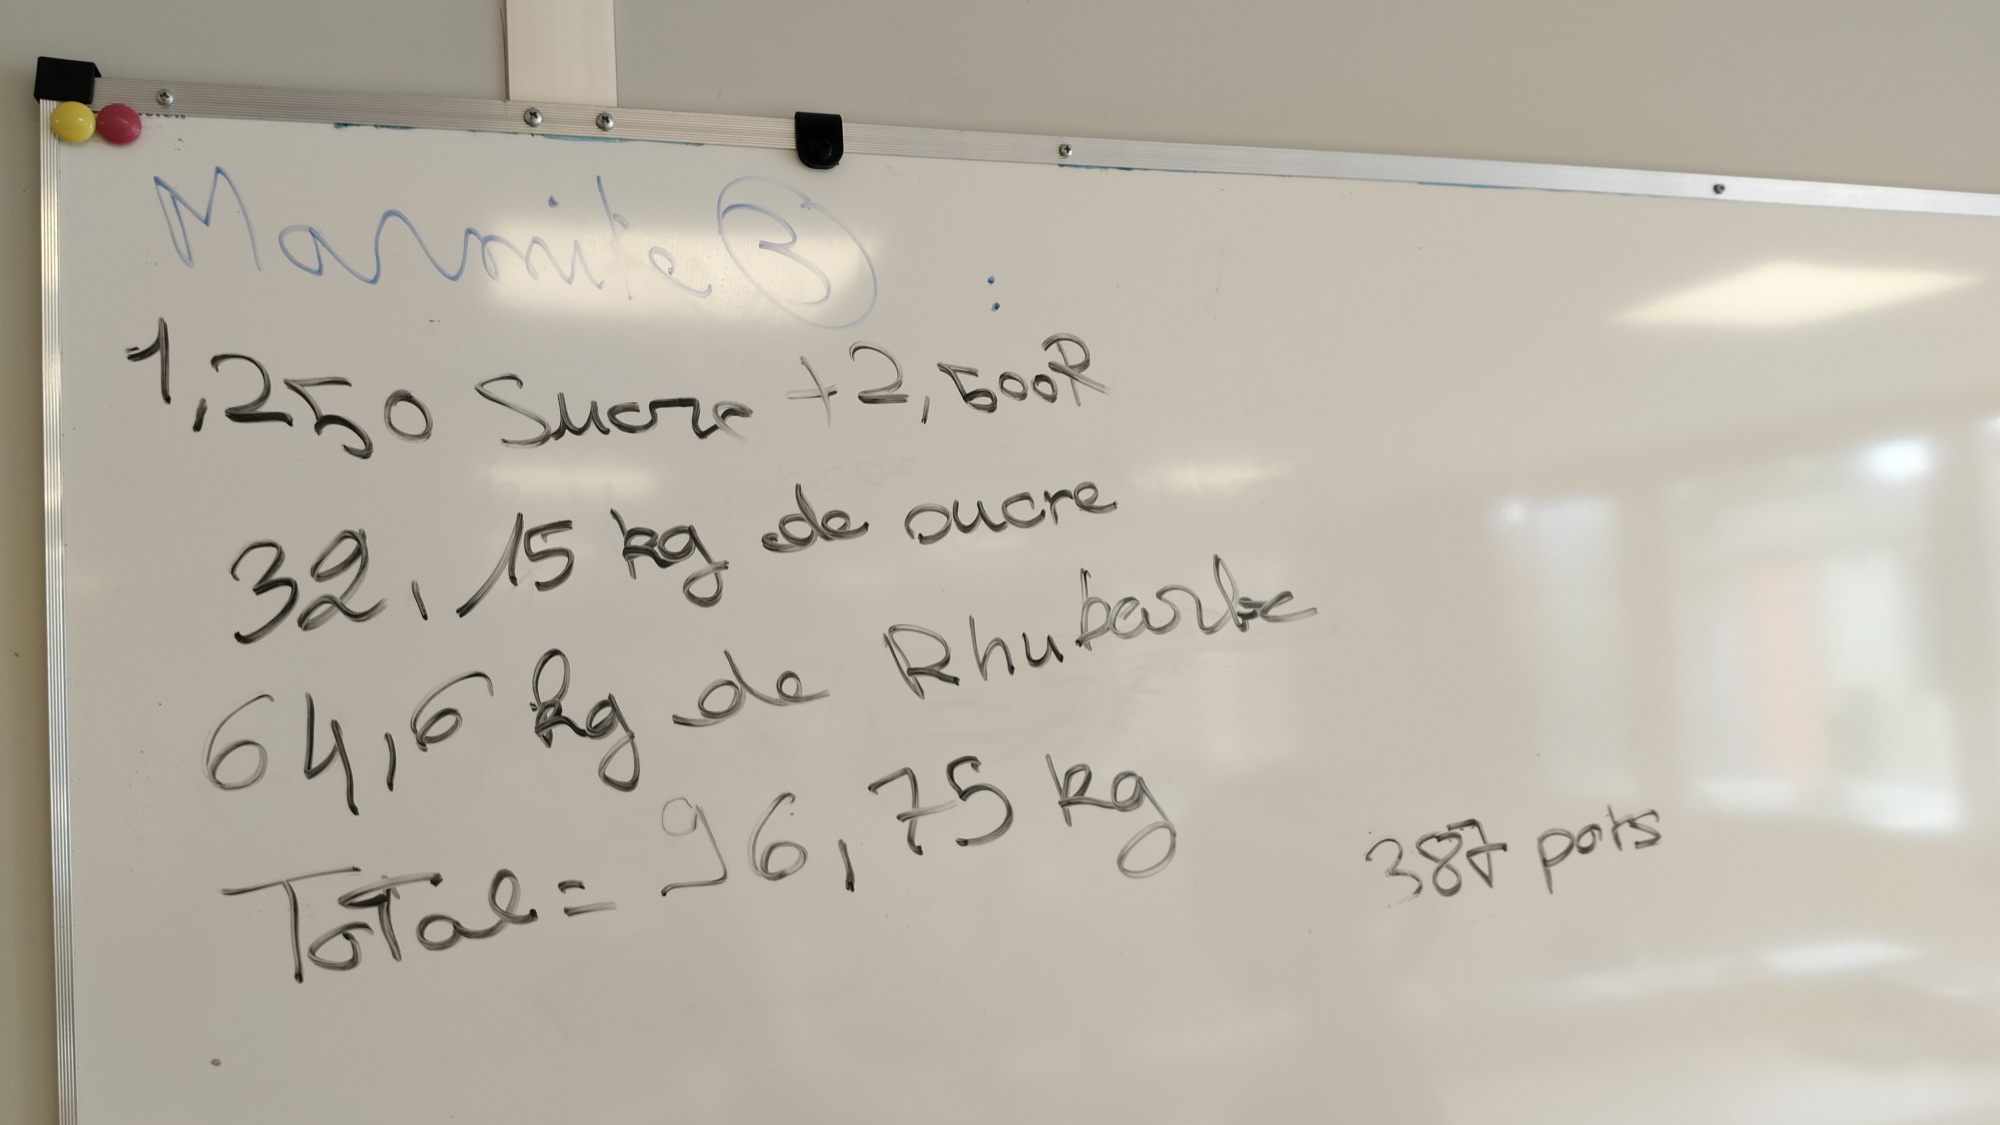 Marmite 3 :
1,250 Sucre + 2,500 R
32,15 kg de sucre
64,6 kg de Rhubarbe
Total = 96,75 kg
387 pots